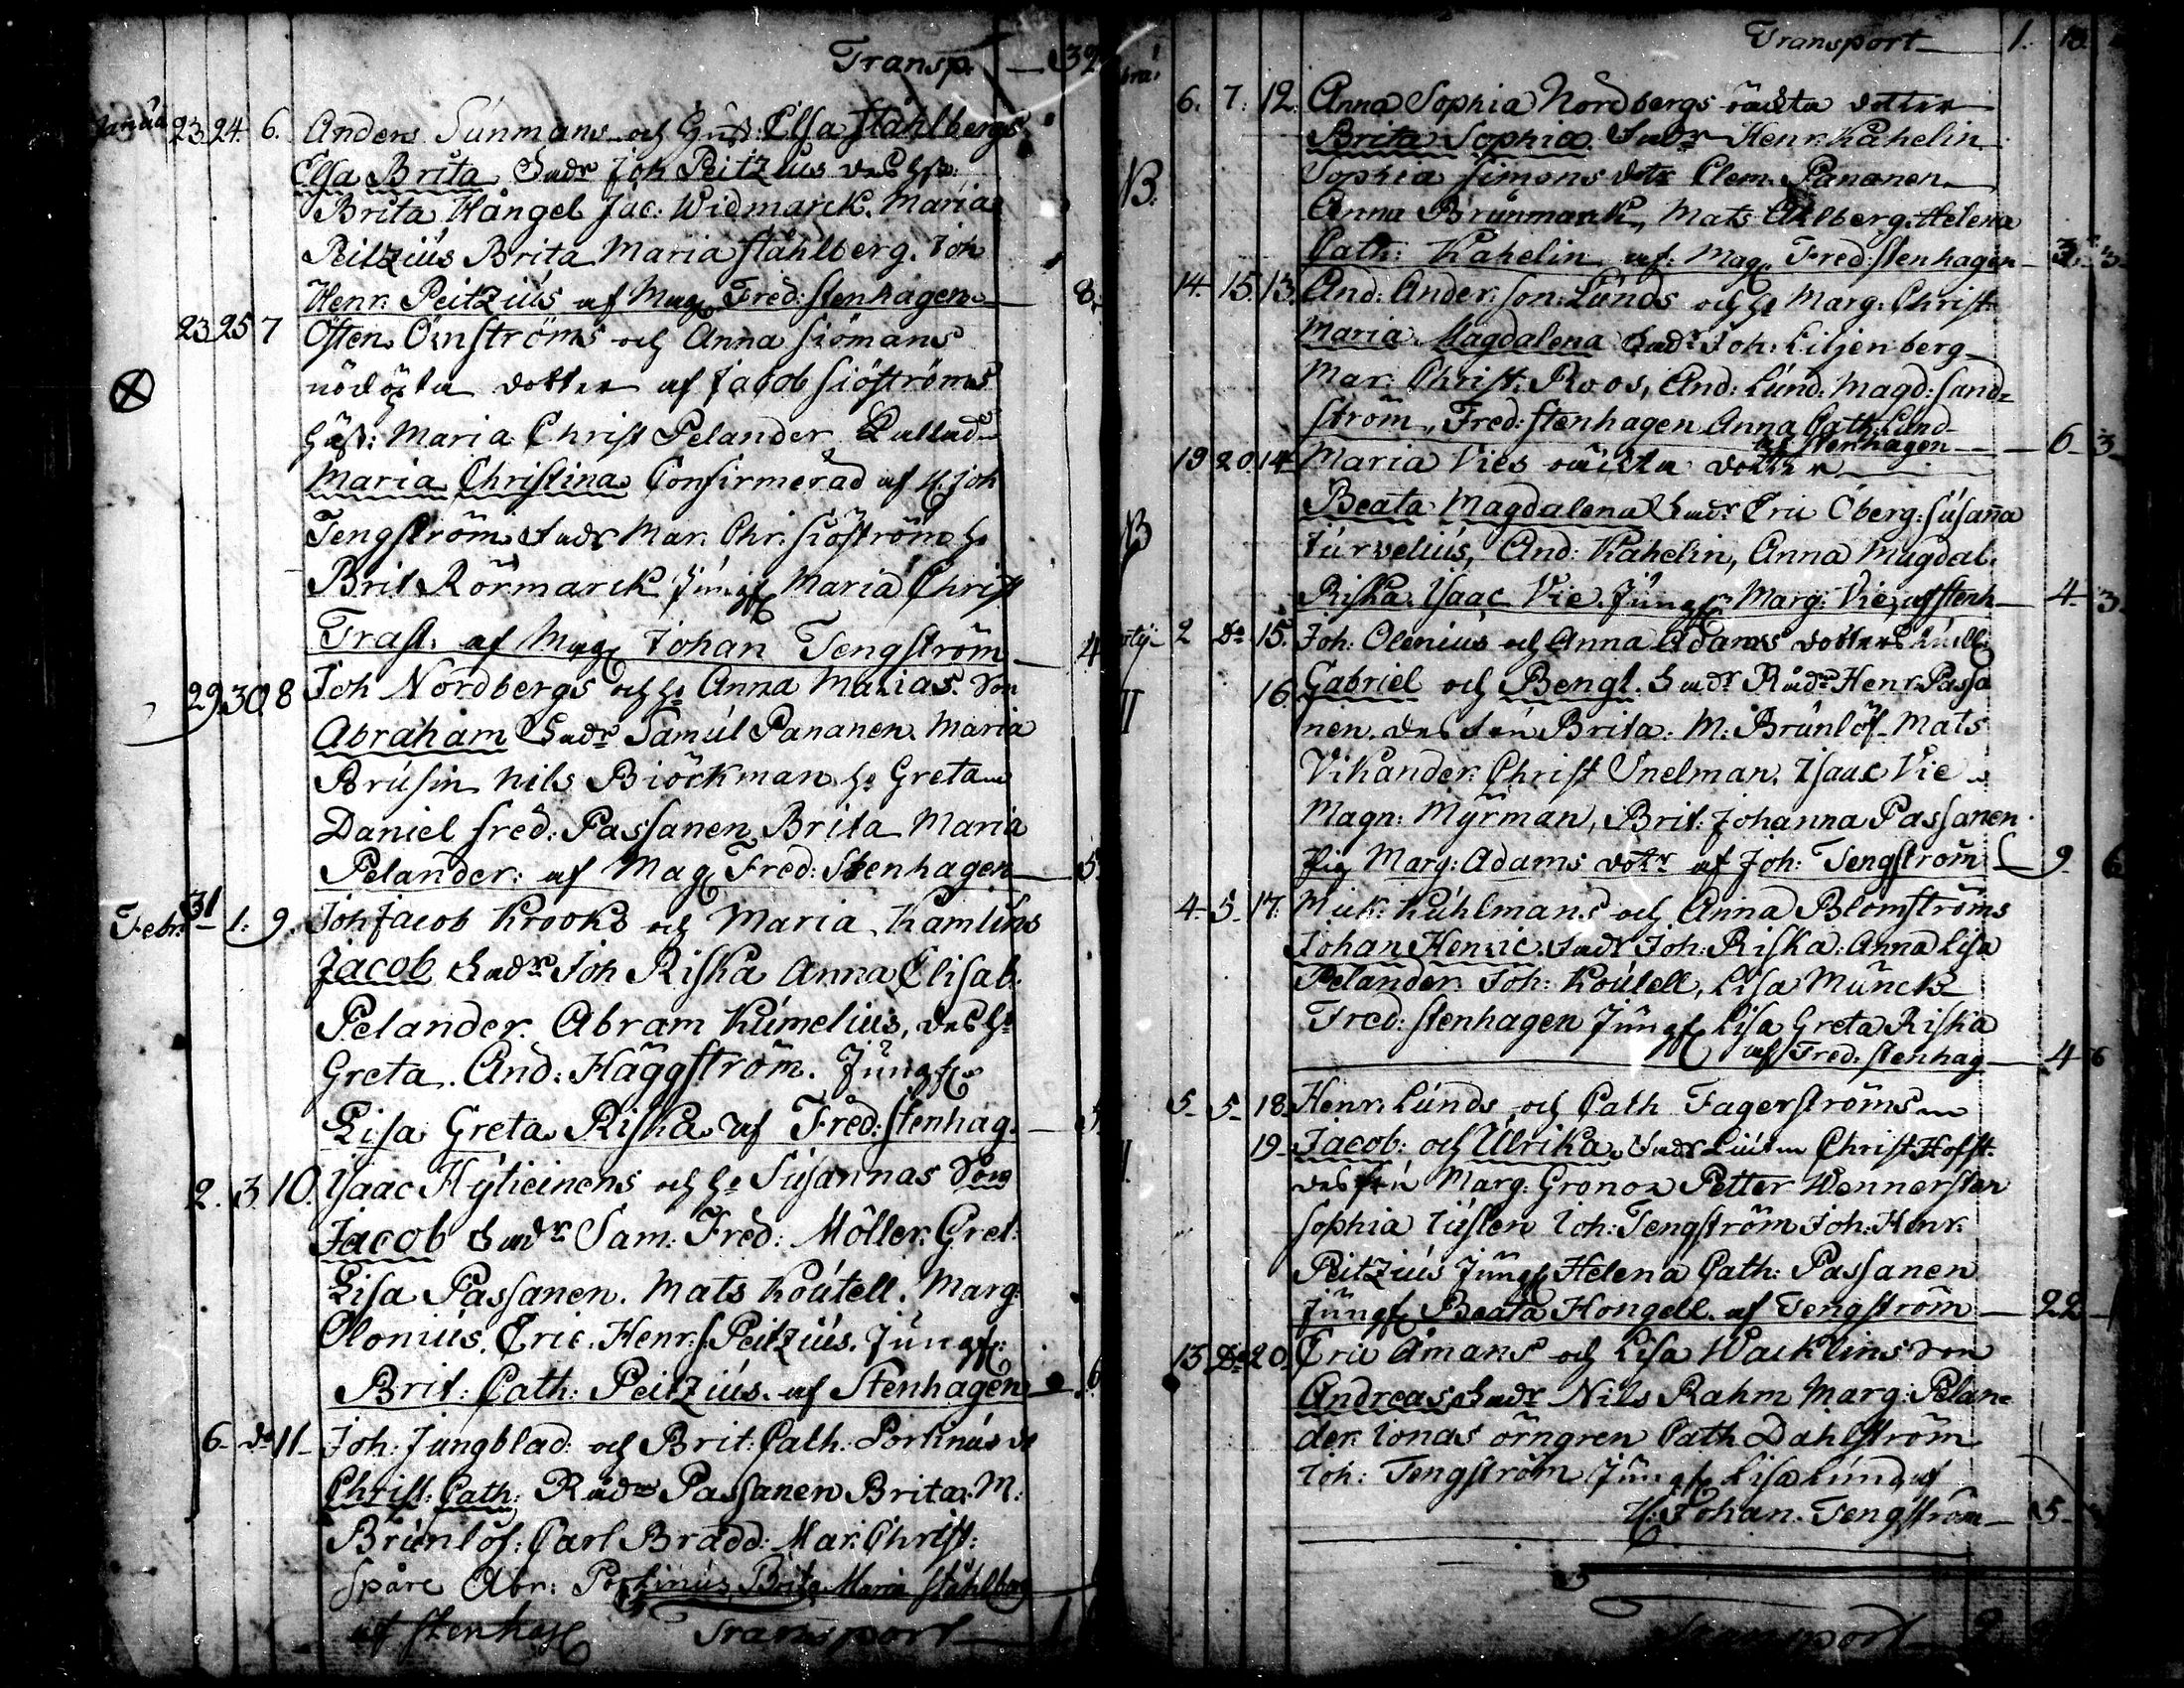 Transp. — 32
23 24. 6. Anders Sunmans och Hust: Elsa Ståhlbergs
Elsa Brita. Fadr Joh Peitzius des hst:
Brita Hångel Jac: Widmarck. Maria
Peitzius Brita Maria Ståhlberg. Joh
Henr. Peitzius af Mag Fred: Stenhagen — 8.
23 25 7 Östen Örnströms och Anna Siömans
nödöpta dotter af Jacob Siöströms
hust: Maria Christ Pelander Kallad
Maria Christina Confirmerad af H. Joh
Tengström Fadr Mar. Chr. Siöström h
Brit Rörmarck Jungf Maria Christ
Trast. af Mag Johan Tengström — 4
29. 30. 8 Joh Nordbergs och h Anna Marias Son
Abraham Fadr Samul Pananen Maria
Brusin Nils Biöckman h Greta
Daniel Fred: Passanen Brita Maria
Pelander: af Mag Fred: Stenhagen — 5.
Febr. 31 1. 9. Joh Jacob Krooks och Maria Kamlins
Jacob Fadr Joh Riska Anna Elisab.
Pelander. Abram Kumelius, des h
Greta. And: Häggström. Jungf
Lisa Greta Riska af Fred: Stenhag. — 5.
2. 3. 10. Isaac Hyticinens och h Susannas Son
Jacob Fadr Sam: Fred: Möller. Gret:
Lisa Passanen. Mats Koutell. Marg.
Olonius. Eric. Henr: Peitzius. Jungf:
Brit: Cath: Peitzius. af Stenhagen — 6
6. Do 11 — Joh: Jungblad: och Brit: Cath: Portinus d
Christ: Cath: Rådm Passanen Brita. M:
Brunlöf: Carl Bradd: Mar: Christ:
Spåre Abr: Portinus, Brita Maria Ståhlberg
af Stenhag Transport —
Transport — 1.
6. 7. 12. Anna Sophia Nordbergs oäckta dotter
Brita Sophia. Fadr Henr. Kahelin
Sophia Simons dotr Clem. Pananen
NB. Anna Brunmark, Mats Ahlberg. Helena
Cath: Kahelin af: Mag. Fred: Stenhagen — 3. 3
14. 15. 13. And: Anderson: Lunds och h Marg: Christ
Maria Magdalena Fadr Joh: Liljenberg
Mar: Christ: Roos, And: Lund: Magd: Sand=
ström, Fred: Stenhagen Anna Cath: Lund
af Stenhagen — 6 — 3
19 20. 14 Maria Vies oäckta dotter
Beata Magdalena Fadr Eric Öberg: Susanna
NB Turvelius, And: Kahelin, Anna Magdal.
Riska. Isaac Vie. Jungf Marg: Vie, af Stenh — 4 — 3.
2 Do 15. Joh. Olenius och Anna Adams dotters tuill
16. Gabriel och Bengt. Fadr Rådm Henr. Passa
nen. des fru Brita: M: Brunlöf. Mats
Vikander: Christ Snelman. Isaac Vie
Magn: Myrman, Brit: Johanna Passanen
Pig Marg: Adams dotr af Joh: Tengström — 9. 6
4. 5. 17. Mick: Kuhlmans och Anna Blomströms
Johan Henric. Fadr Joh: Riska: Anna Lisa
Pelander. Joh: Koutell, Lisa Munck
Fred: Stenhagen Jungf Lisa Greta Riska
af Fred: Stenhag — 4 6
5. 5. 18. Henr. Lunds och Cath Fagerströms
19. Jacob: och Ulrika. Fadr Liutn Christ: Hofst.
des fru Marg: Gronow Petter Wennersten
Sophia Tusten Joh: Tengström Joh: Henr.
Peitzius Jungf Helena Cath: Passanen
Jungf Beata Hongell. af Tengström — 22
13 Do 20. Eric Åmans och Lisa Wacklins Son
Andreas Fadr Nils Rahm Marg: Pelan=
der. Jonas Örngren Cath Dahlström
Joh: Tengström Jungf Lisa Lund, af
H: Johan. Tengström — 5 —
Transport